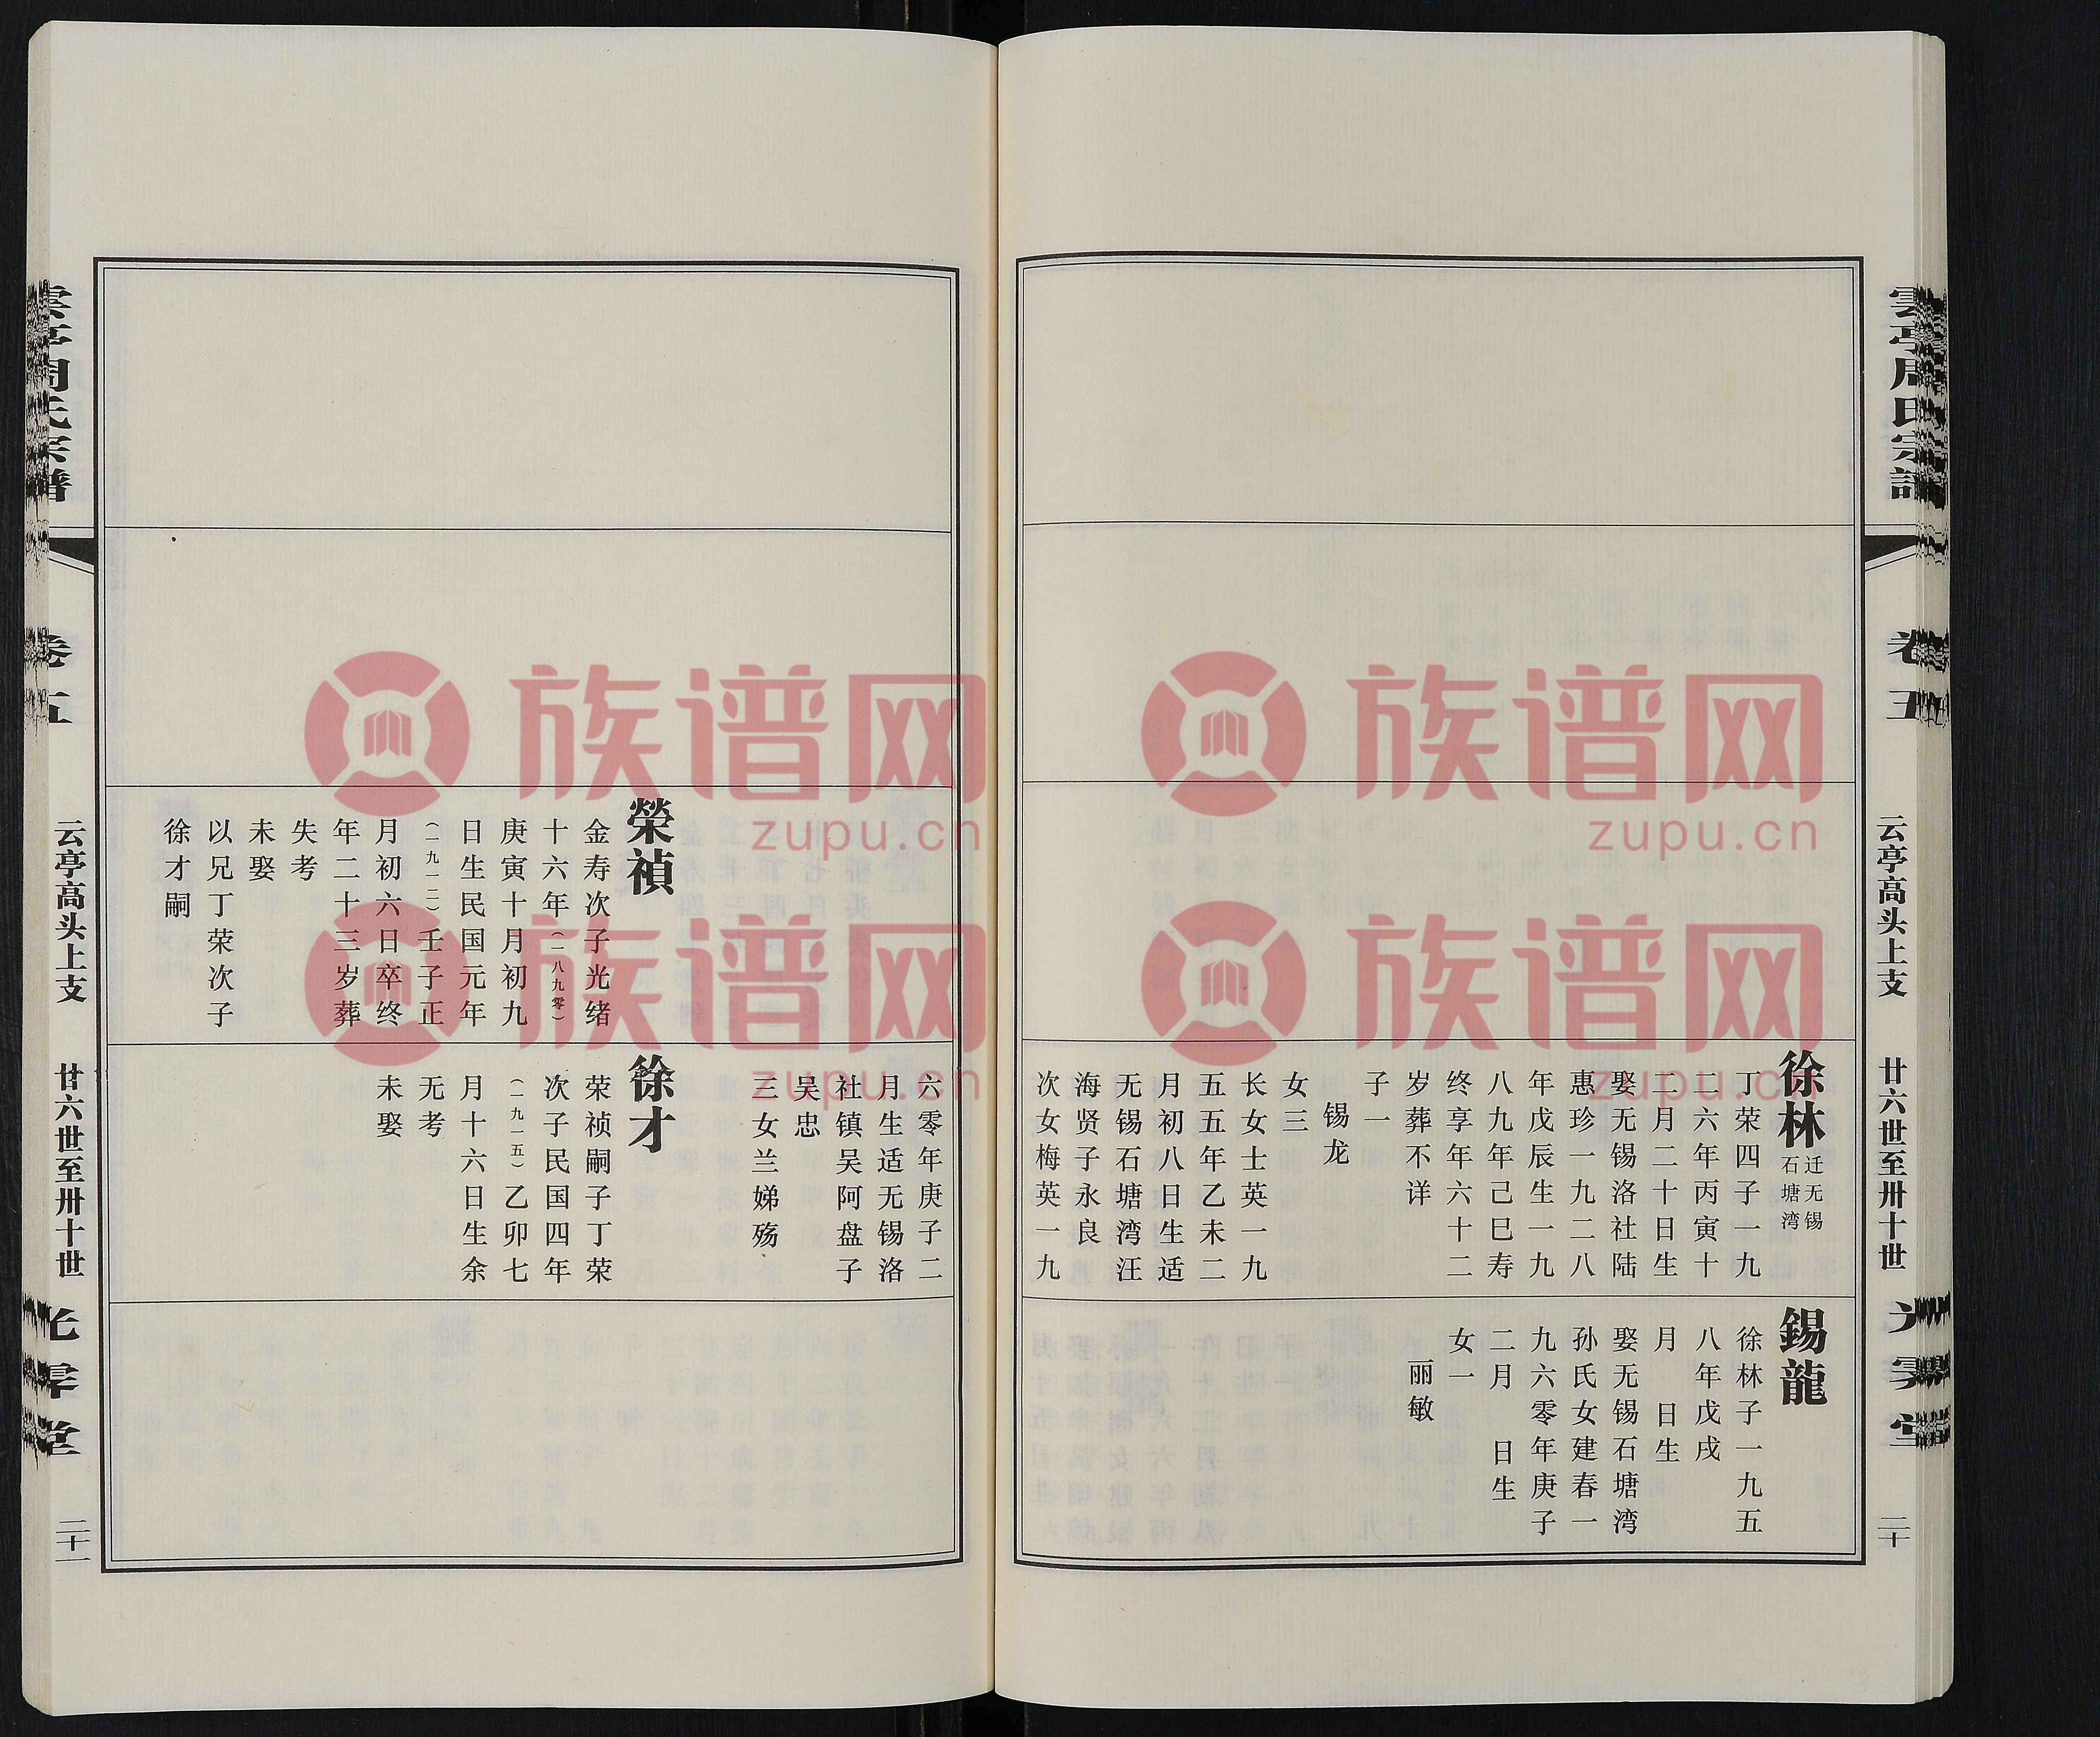 雲亭周氏宗譜
卷五
云亭高头上支
廿六世至卅十世
光霁堂
二十
徐林
迁无锡
石塘湾
丁荣四子一九
二六年丙寅十
二月二十日生
娶无锡洛社陆
惠珍一九二八
年戊辰生一九
八九年己巳寿
终享年六十二
岁葬不详
子一
锡龙
女三
长女士英一九
五五年乙未二
月初八日生适
无锡石塘湾汪
海贤子永良
次女梅英一九
錫龍
徐林子一九五
八年戊戌
月 日生
娶无锡石塘湾
孙氏女建春一
九六零年庚子
二月 日生
女一
丽敏
六零年庚子二
月生适无锡洛
社镇吴阿盘子
吴忠
三女兰娣殇
榮禎
金寿次子光绪
十六年（一八九零）
庚寅十月初九
日生民国元年
（一九一二）壬子正
月初六日卒终
年二十三岁葬
失考
未娶
以兄丁荣次子
徐才嗣
徐才
荣祯嗣子丁荣
次子民国四年
（一九一五）乙卯七
月十六日生余
无考
未娶
雲亭周氏宗譜
卷五
云亭高头上支
廿六世至卅十世
光霁堂
二十一
族谱网
zupu.cn
族谱网
zupu.cn
族谱网
zupu.cn
族谱网
zupu.cn